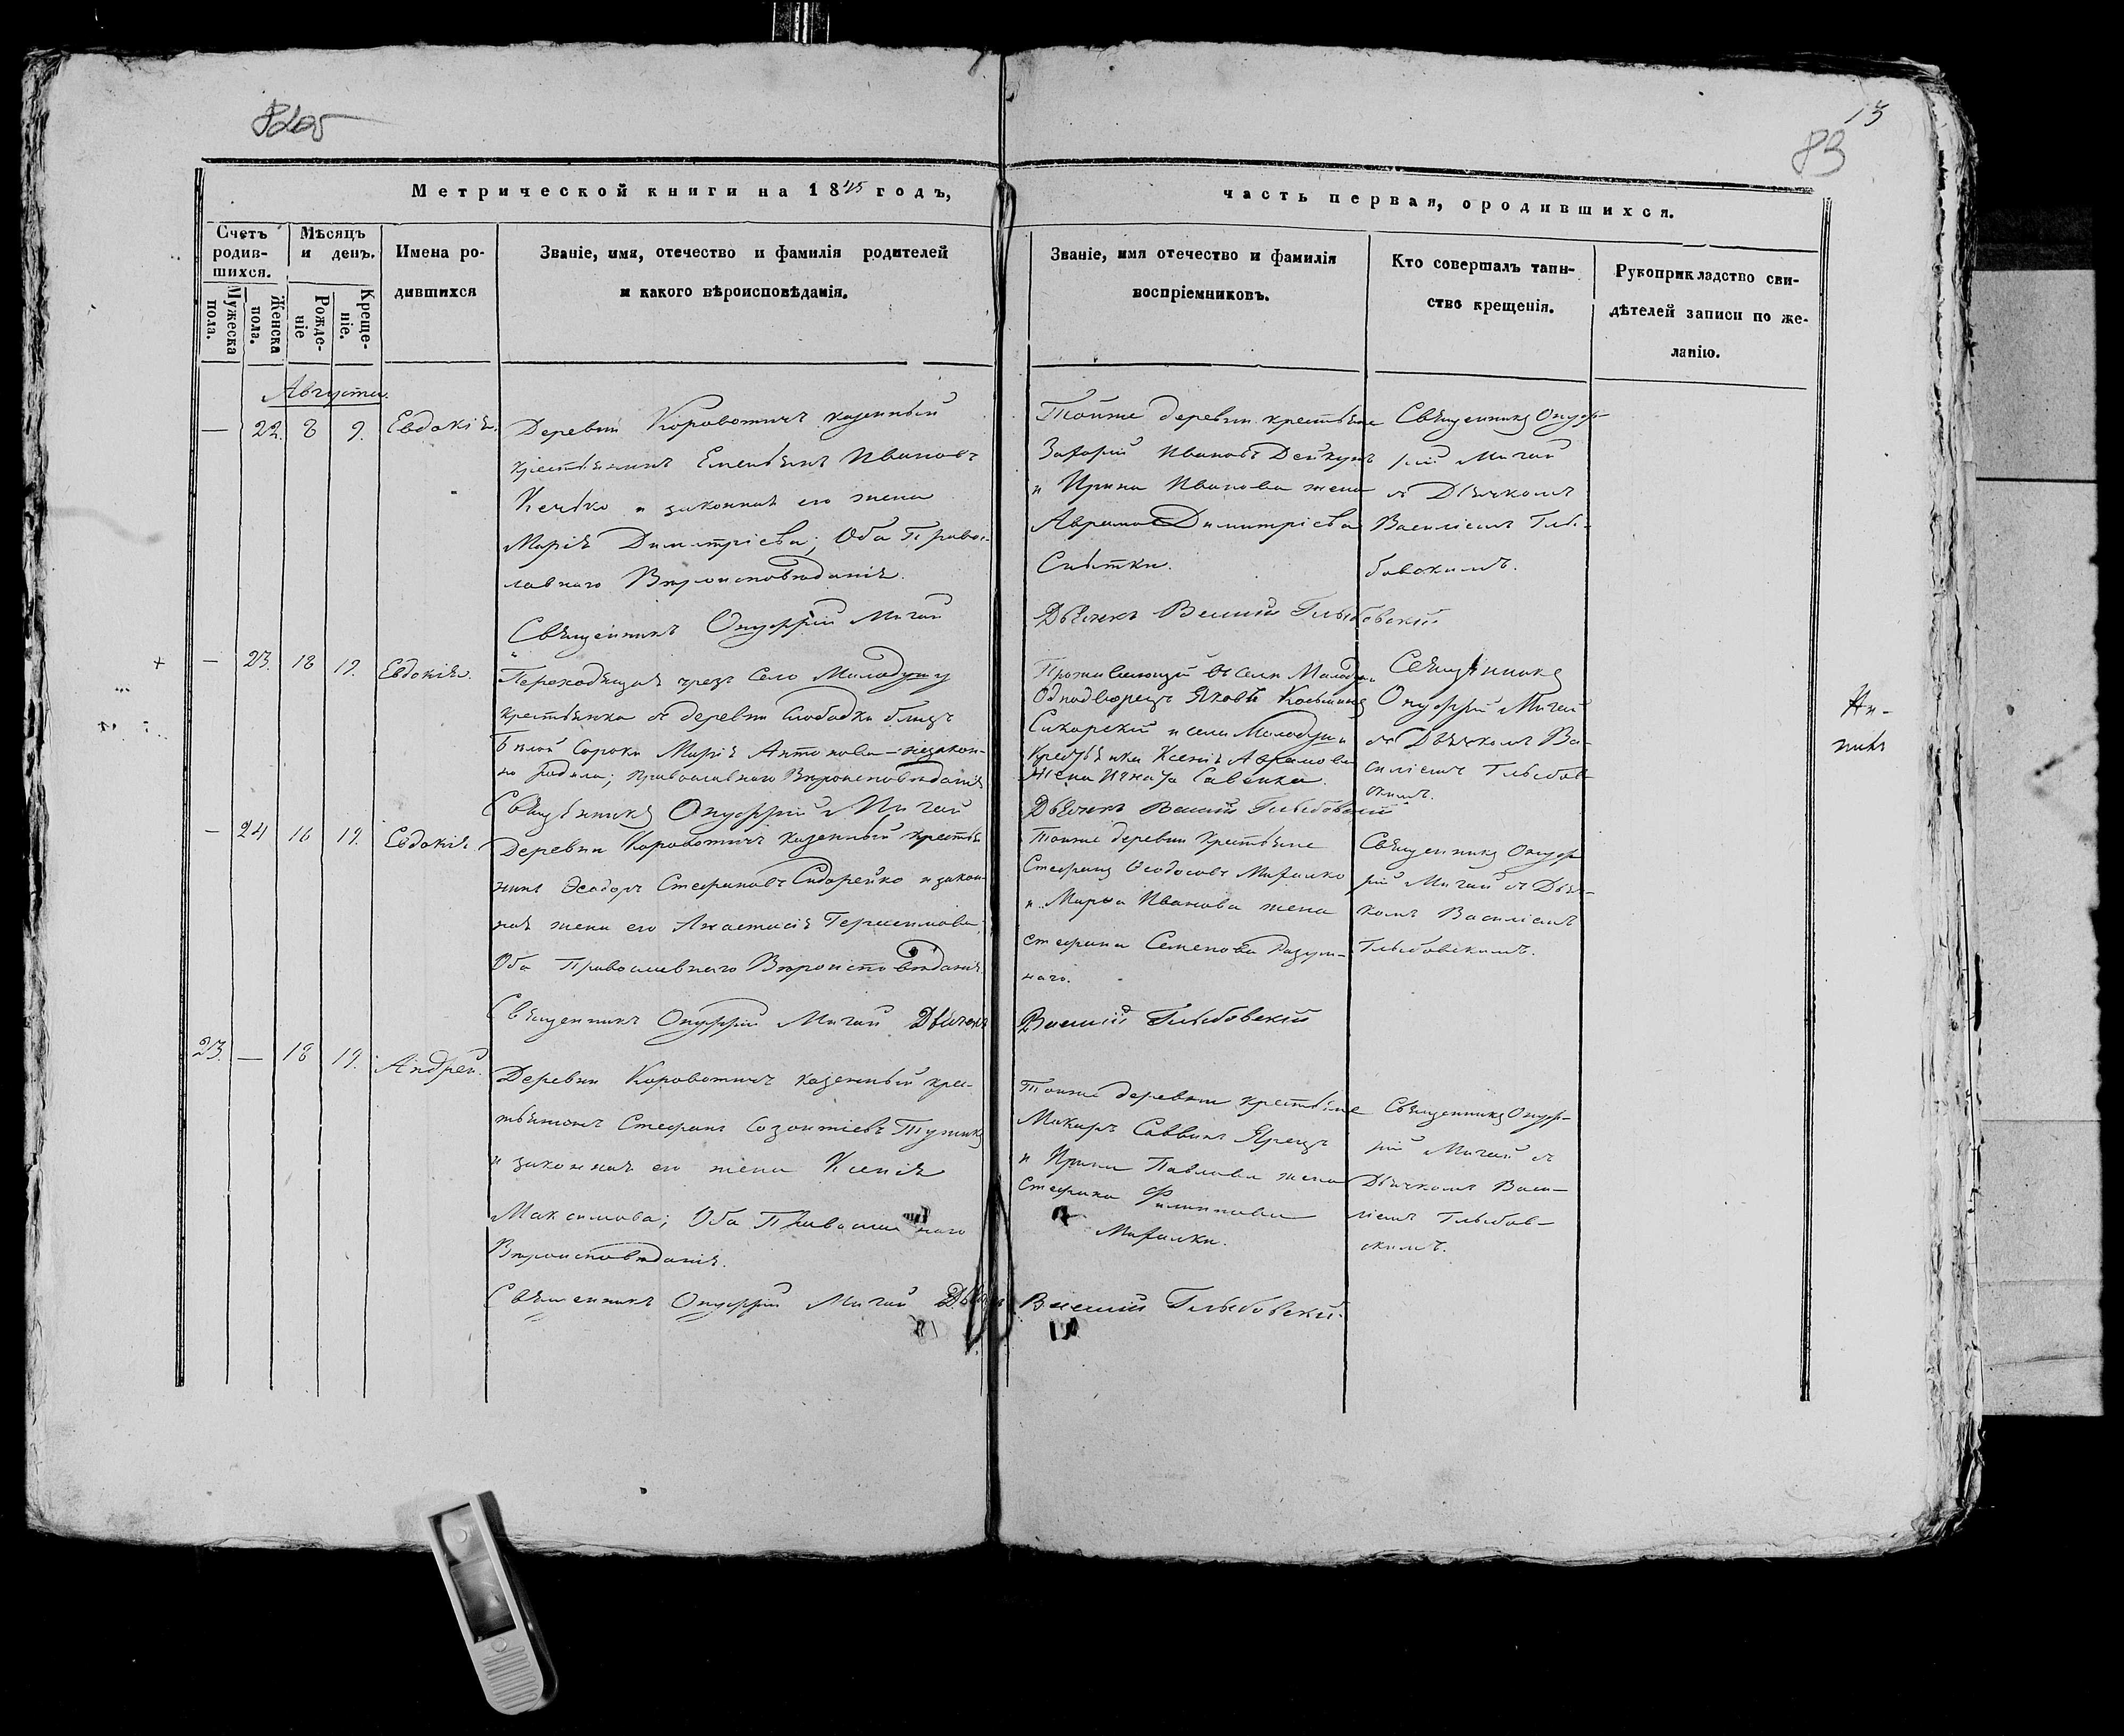 82об
13
83
Метрической книги на 1845 годъ,
часть первая, о родившихся.
Счетъ родив-
шихся.
Мужеска пола.
Женска пола.
Мѣсяцъ и день.
Рожде-
ніе
Креще-
ніе.
Имена ро-
дившихся
Званіе, имя, отечество и фамилія родителей
и какого вѣроисповѣданія.
Званіе, имя отечество и фамилія
воспріемниковъ.
Кто совершалъ таин-
ство крещенія.
Рукоприкладство сви-
дѣтелей записи по же-
ланію.
Августа.
— 22. 8 9. Евдокія.
Деревни Короватичъ казенный
крестьянинъ Емельянъ Ивановъ
и законная его жена
Марія Димитріева; Оба Правос-
лавнаго Вѣроисповѣданія.
Священникъ Онуфрій Мигай
Тойже деревни крестьяне
Захарій Ивановъ Дейкунъ
и Ирина Иванова жена
Аврама Димитріева
Сытки.
Дьячекъ Василій Глыбовскій
Священникъ Онуф-
рій Мигай
съ Дьячкомъ
Василіемъ Глы-
бовскимъ.
— 23. 18 19. Евдокія.
Переходящая чрезъ Село Малодушу
крестьянка съ деревни Слободки близь
Бѣлой Сороки Марія Антонова — незакон-
но родила; Православнаго Вѣроисповѣданія
Священникъ Онуфрій Мигай
Проживающій въ селѣ Малодуши
Однодворецъ Яковъ Косьминъ
Сикорскій и села Малодуши
Крестьянка Ксенія Аврамова
жена Игната Савенка.
Дьячекъ Василій Глыбовскій
Священникъ
Онуфрій Мигай
съ Дьячкомъ Ва-
силіемъ Глыбов-
скимъ.
— 24 18 19. Евдокія
Деревни Короватичъ казенный крестья-
нинъ Ѳеодоръ Стефановъ Сидорейко и закон-
ная жена его Анастасія Герасимова;
Оба Православнаго Вѣроисповѣданія.
Священникъ Онуфрій Мигай Дьячекъ
Тойже деревни крестьяне
Стефанъ Ѳеодосовъ Михалко
и Марѳа Иванова жена
Стефана Семенова Разум-
наго.
Василій Глыбовскій
Священникъ Онуф-
рій Мигай съ Дьяч-
комъ Василіемъ
Глыбовскимъ.
23. — 18 19. Андрей.
Деревни Короватичъ казенный крес-
тьянинъ Стефанъ Созонтіевъ
и законная его жена Ксенія
Максимова; Оба Православнаго
Вѣроисповѣданія.
Священникъ Онуфрій Мигай Дьячекъ
Тойже деревни крестьяне
Макаръ Саввинъ Ярецъ
и Ирина Павлова жена
Стефана Филиппова
Михалки.
Василій Глыбовскій.
Священникъ Онуф-
рій Мигай съ
Дьячкомъ Васи-
ліемъ Глыбов-
скимъ.